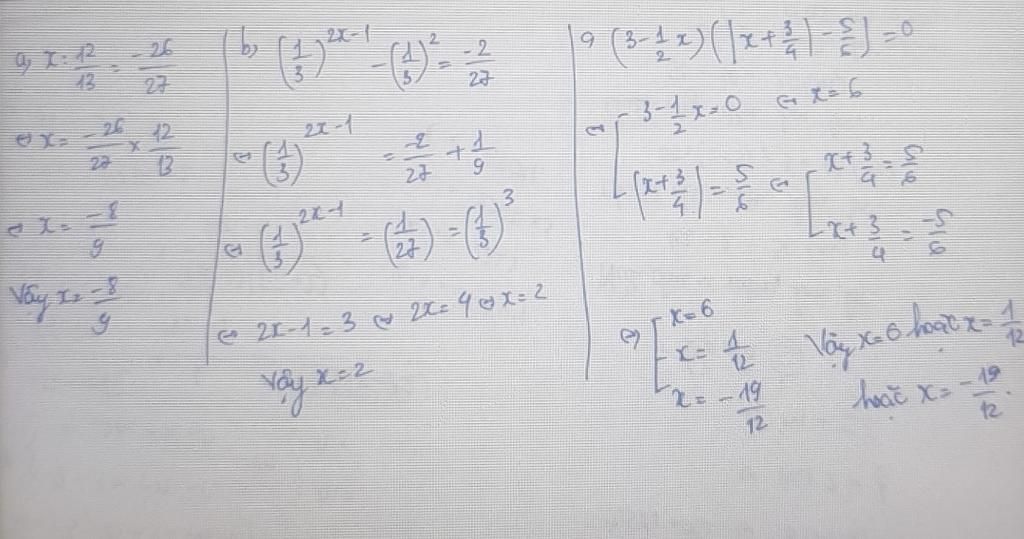 a, x : 12/13 = -26/27
⇔ x = -26/27 × 12/13
⇔ x = -8/9
Vậy x = -8/9
b, (1/3)^2x-1 - (1/3)^2 = -2/27
⇔ (1/3)^2x-1 = -2/27 + 1/9
⇔ (1/3)^2x-1 = (1/27) = (1/3)^3
⇔ 2x-1 = 3 ⇔ 2x = 4 ⇔ x = 2
Vậy x = 2
c, (3 - 1/2 x)(|x + 3/4| - 5/6) = 0
⇔ [ 3 - 1/2 x = 0 ⇔ x = 6
|x + 3/4| = 5/6 ⇔ [ x + 3/4 = 5/6
x + 3/4 = -5/6
⇔ [ x = 6
x = 1/12
x = -19/12
Vậy x = 6 hoặc x = 1/12
hoặc x = -19/12.